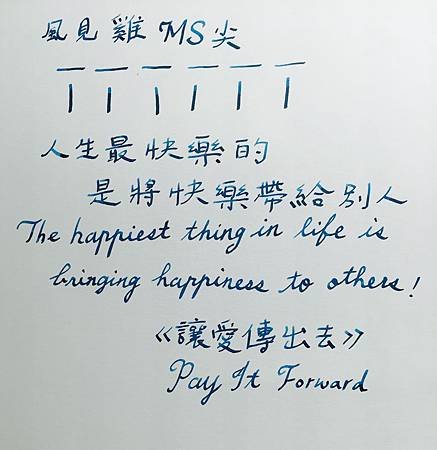 風見雞 MS尖
人生最快樂的
是將快樂帶給別人
The happiest thing in life is
bringing happiness to others!
《讓愛傳出去》
Pay It Forward